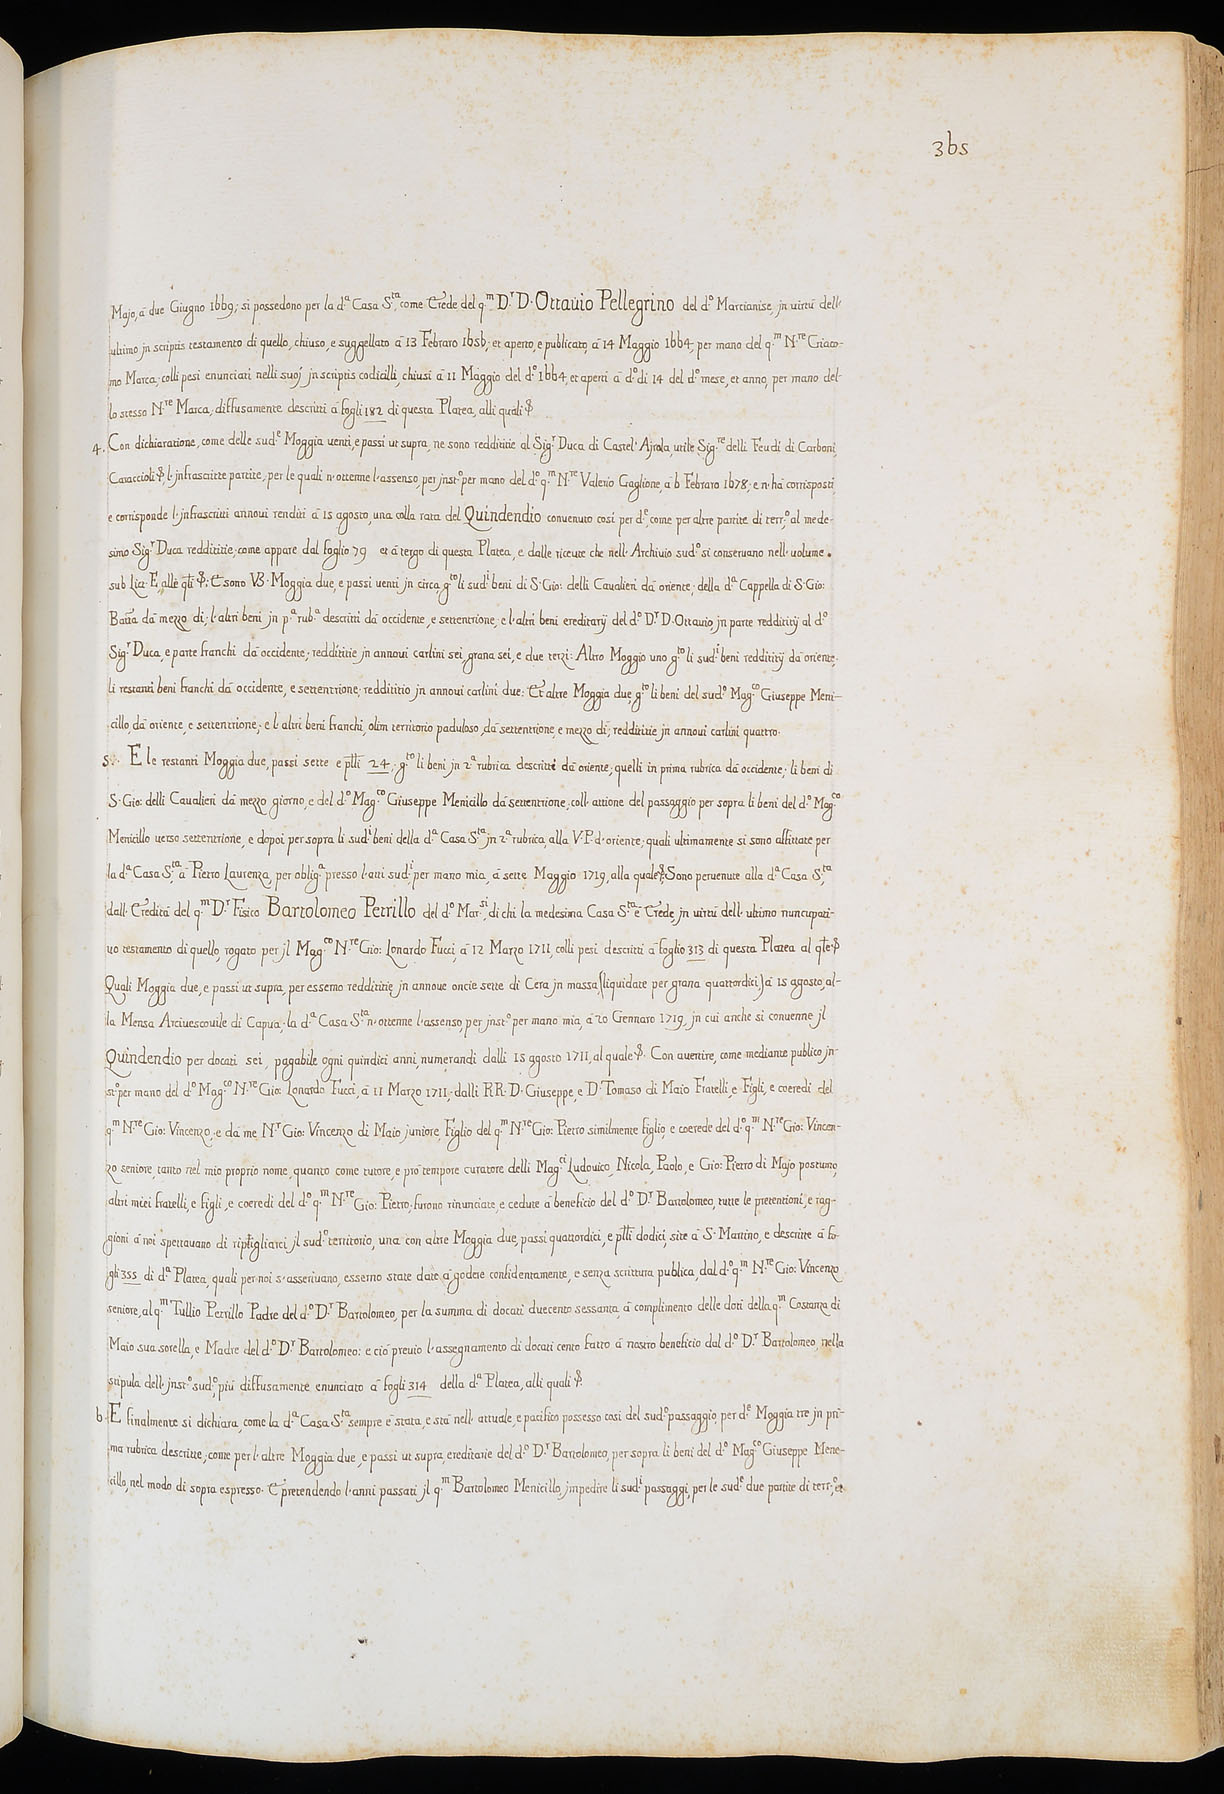 3bs
Majo, à due Giugno 1bb9; si possedono per la dª Casa Sta, come Erede del qm Dr D. Ottauio Pellegrino del d° Marcianise, jn uirtù dell'
ultimo jn scriptis testamento di quello, chiuso, e suggellato à 13 Febraro 1bsb; et aperto, e publicato, à 14 Maggio 1bb4, per mano del qm Nre Giaco-
mo Marca; colli pesi enunciati nelli suoj jn scriptis codicilli, chiusi à 11 Maggio del d° 1bb4, et aperti à d° di 14 del d° mese, et anno, per mano del-
lo stesso Nre Marca, diffusamente descritti à fogli 182 di questa Platea, alli quali &
4. Con dichiaratione, come delle sude Moggia uenti, e passi ut supra, ne sono reddititie al Sigr Duca di Castel' Ajrola, utile Sigre delli Feudi di Carboni,
Caraccioli &, l'jnfrascritte partite, per le quali n'ottenne l'assenso, per jnst° per mano del d° qm Nre Valerio Gaglione, à b Febraro 1b78; e n'hà corrisposti,
e corrisponde l'jnfrascritti annoui renditi à 15 agosto, una colla rata del Quindendio conuenuto così per de, come per altre partite di terr° al mede-
simo Sigr Duca reddititie; come appare dal foglio 79 et à tergo di questa Platea, e dalle riceute che nell' Archiuio sud° si conseruano nell' uolume.
sub Lia: E, alle qli &: E sono VB. Moggia due, e passi uenti jn circa, gto li sudi beni di S. Gio: delli Caualieri dà oriente; della dª Cappella di S. Gio:
Batta dà mezzo dì; l'altri beni jn pª rubª descritti dà occidente, e settentrione, e l'altri beni ereditarij del d° Dr D. Ottauio, jn parte reddititij al d°
Sigr Duca, e parte franchi dà occidente; reddititie jn annoui carlini sei, grana sei, e due terzi: Altro Moggio uno gto li sudi beni reddititij dà oriente,
li restanti beni franchi dà occidente, e settentrione; reddititio jn annoui carlini due: Et altre Moggia due, gto li beni del sud° Magco Giuseppe Meni-
cillo, dà oriente, e settentrione; e l'altri beni franchi, olim territorio paduloso, dà settentrione, e mezzo dì; reddititie jn annoui carlini quattro.
5. E le restanti Moggia due, passi sette e ptti 24, gto li beni jn 2ª rubrica descritti dà oriente; quelli in prima rubrica dà occidente; li beni di
S. Gio: delli Caualieri dà mezzo giorno, e del d° Magco Giuseppe Menicillo dà settentrione, coll' attione del passaggio per sopra li beni del d° Magco
Menicillo uerso settentrione, e dopoi per sopra li sudi beni della dª Casa Sta jn 2ª rubrica, alla V.P. d'oriente; quali ultimamente si sono affittate per
la dª Casa Sta, à Pietro Laurenza, per obligª presso l'atti sudi, per mano mia, à sette Maggio 1719, alla quale &. Sono peruenute alla dª Casa Sta,
dall' Eredità del qm Dr Fisico Bartolomeo Petrillo del d° Marsi, di chi la medesima Casa Sta è Erede, jn uirtù dell' ultimo nuncupati-
uo testamento di quello, rogato per jl Magco Nre Gio: Lonardo Fucci, à 12 Marzo 1711, colli pesi descritti à foglio 313 di questa Platea al qle &
Quali Moggia due, e passi ut supra, per esserno reddititie jn annoue oncie sette di Cera jn massa, (liquidate per grana quattordici) à 15 agosto, al-
la Mensa Arciuescouile di Capua; la dª Casa Sta n'ottenne l'assenso, per jnst° per mano mia, à 20 Gennaro 1719, jn cui anche si conuenne jl
Quindendio per docati sei, pagabile ogni quindici anni, numerandi dalli 15 agosto 1711, al quale &. Con auertire, come mediante publico jn-
st° per mano del d° Magco Nre Gio: Lonardo Fucci, à 11 Marzo 1711; dalli RR. D. Giuseppe, e D. Tomaso di Maio Fratelli, e Figli, e coeredi del
qm Nre Gio: Vincenzo, e dà me Nr Gio: Vincenzo di Maio juniore, Figlio del qm Nre Gio: Pietro similmente figlio, e coerede del d° qm Nre Gio: Vincen-
zo seniore, tanto nel mio proprio nome, quanto come tutore, e pro tempore curatore delli Magci Ludouico, Nicola, Paolo, e Gio: Pietro di Majo postumo,
altri miei fratelli, e figli, e coeredi del d° qm Nre Gio: Pietro, furono rinunciate, e cedute à beneficio del d° Dr Bartolomeo, tutte le pretentioni, e rag-
gioni à noi spettauano di ripigliarci jl sud° territorio, una con altre Moggia due, passi quattordici, e ptti dodici, site à S. Martino, e descritte à fo-
gli 355 di dª Platea, quali per noi s'asseriuano, esserno state date à godere confidentemente, e senza scrittura publica, dal d° qm Nre Gio: Vincenzo
seniore, al qm Tullio Petrillo Padre del d° Dr Bartolomeo, per la summa di docati duecento sessanta, à complimento delle doti della qm Costanza di
Maio sua sorella, e Madre del d° Dr Bartolomeo: e ciò preuio l'assegnamento di docati cento fatto à nostro beneficio dal d° Dr Bartolomeo, nella
stipula dell' jnst° sud°, più diffusamente enunciato à fogli 314 della dª Platea, alli quali &.
b. E finalmente si dichiara, come la dª Casa Sta sempre è stata, e stà nell' attuale, e pacifico possesso così del sud° passaggio, per de Moggia tre jn pri-
ma rubrica descritte, come per l'altre Moggia due, e passi ut supra, ereditarie del d° Dr Bartolomeo, per sopra li beni del d° Magco Giuseppe Mene-
cillo, nel modo di sopra espresso. E pretendendo l'anni passati jl qm Bartolomeo Menicillo, jmpedire li sudi passaggi, per le sude due partite di terr°, et